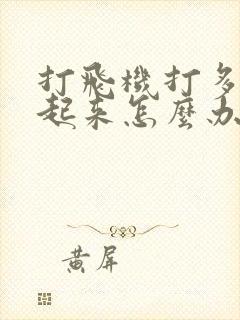 打飛機打多
起来怎麼办
黄屏